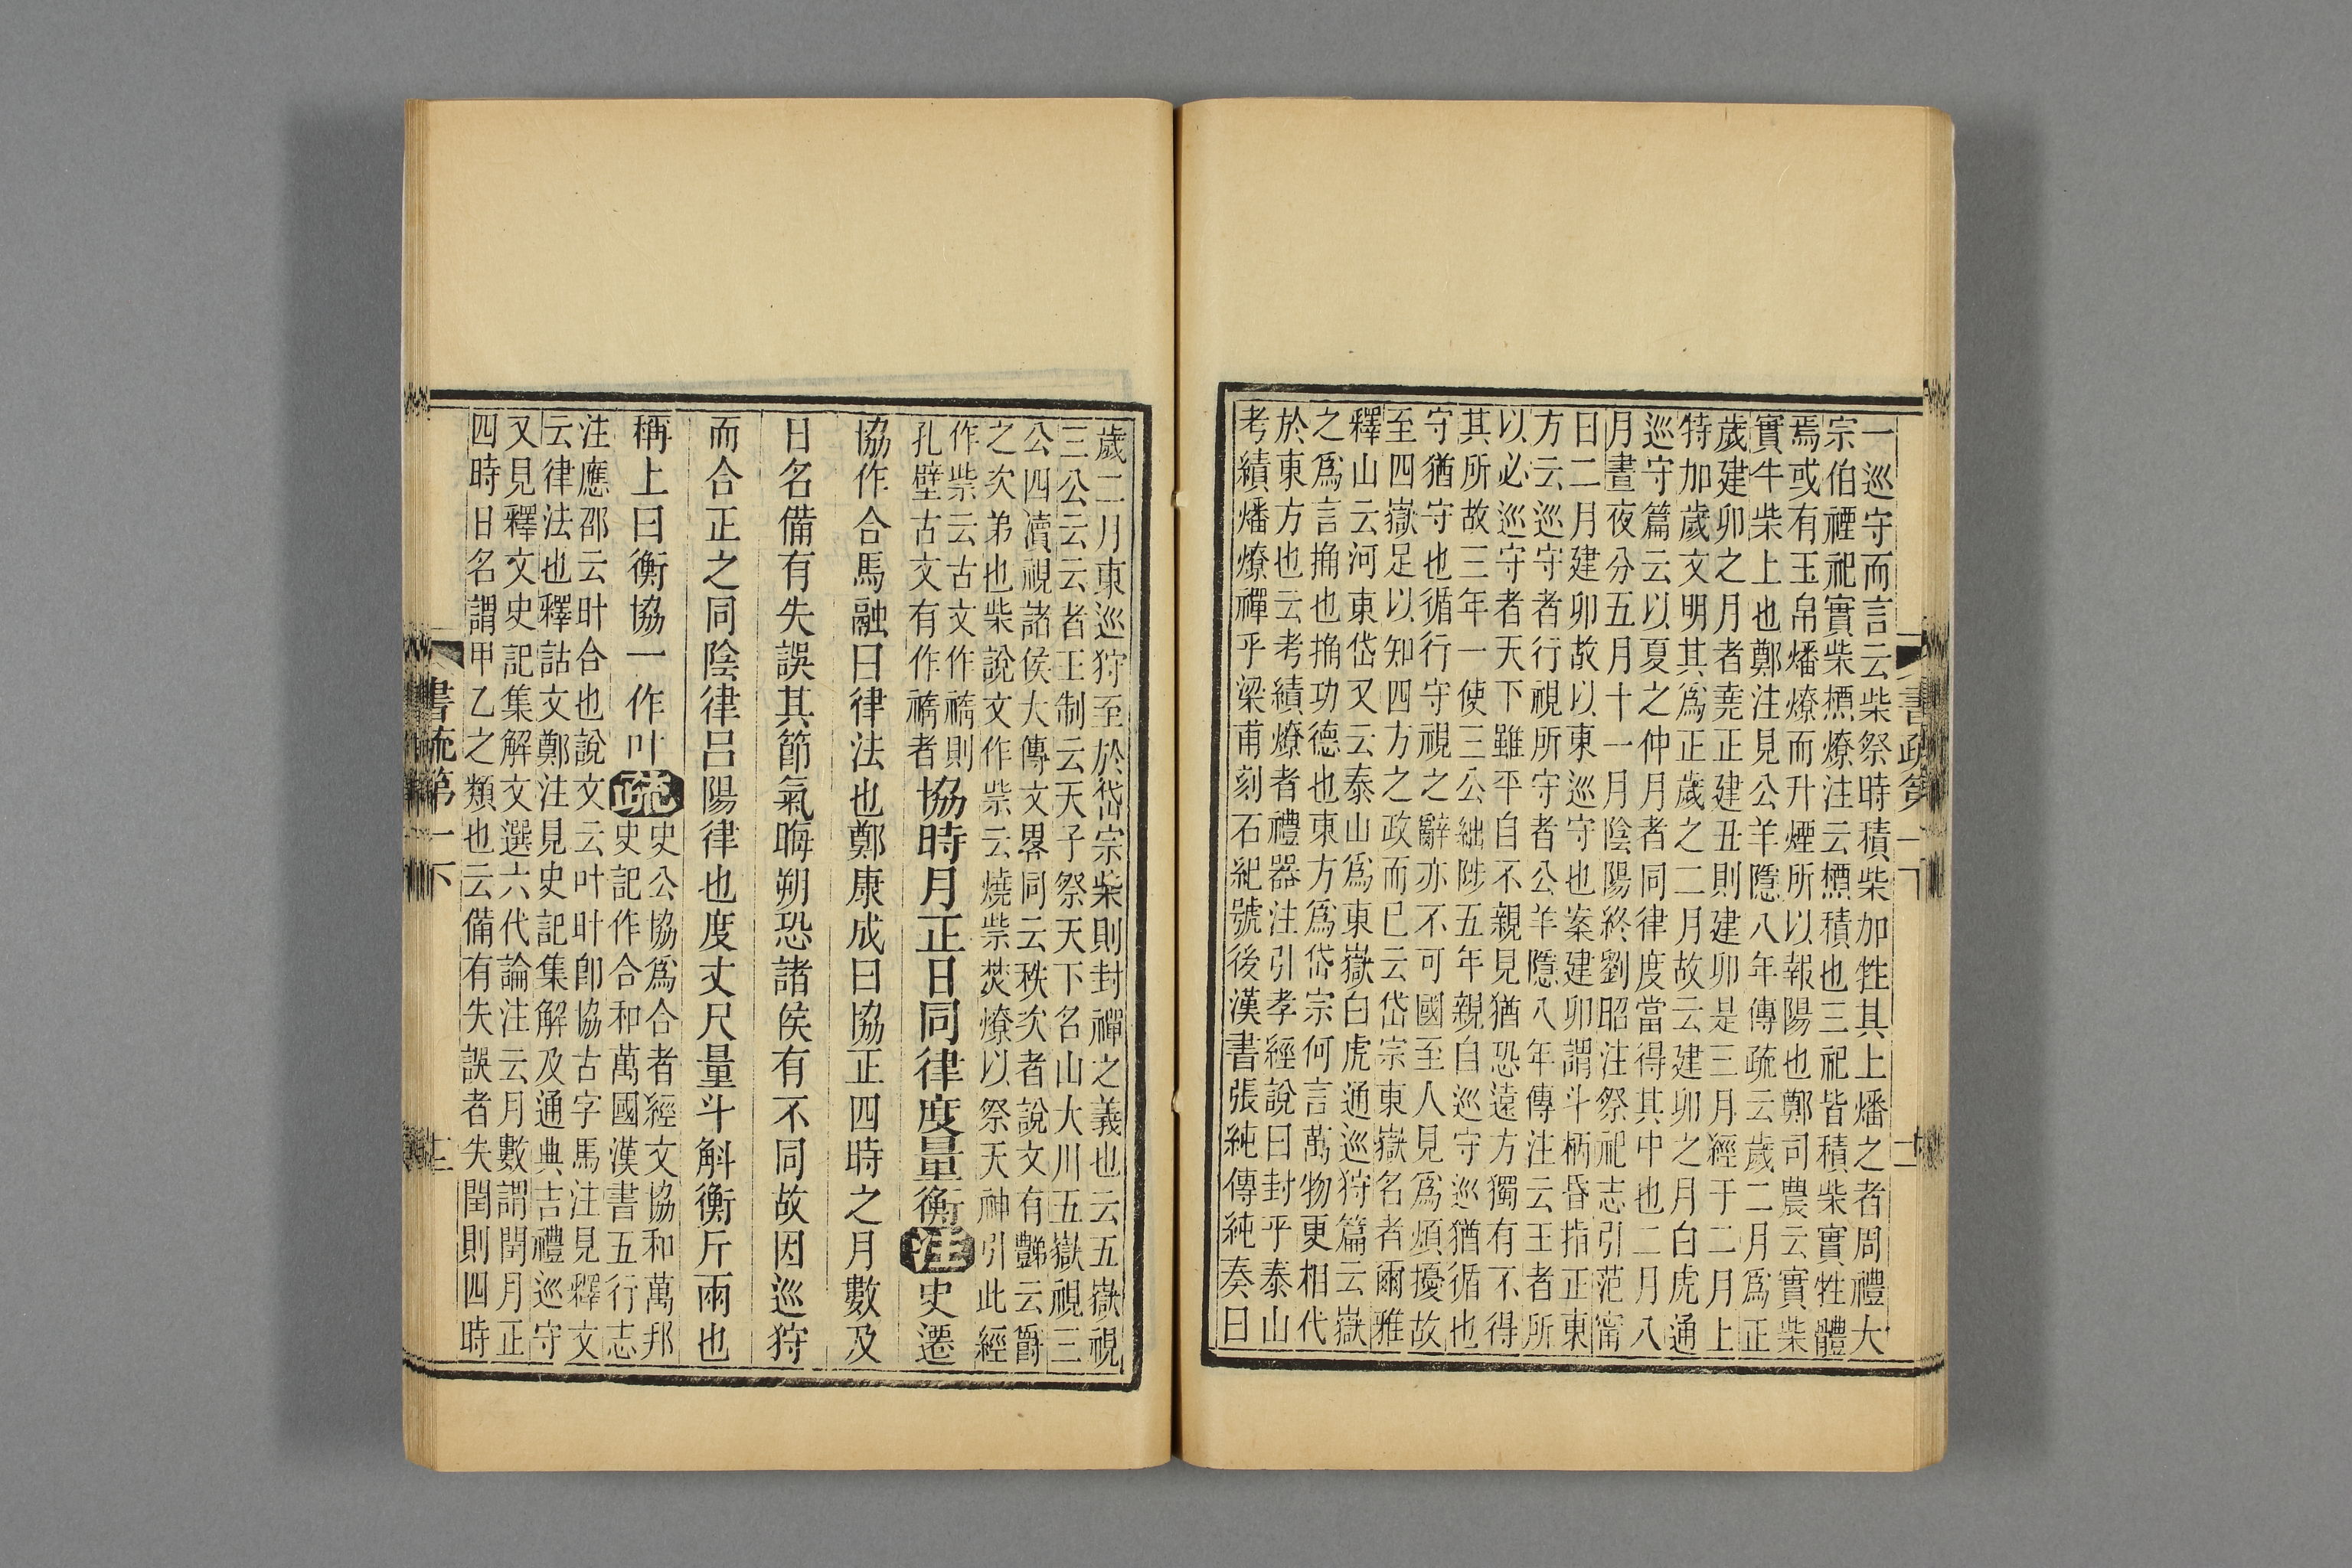 書疏第一下
一巡守而言云柴祭時積柴加牲其上燔之者周禮大
宗伯禋祀實柴槱燎注云槱積也三祀皆積柴實牲體
焉或有玉帛燔燎而升煙所以報陽也鄭司農云實柴
實牛柴上也鄭注見公羊隱八年傳疏云歲二月爲正
歲建卯之月者堯正建丑則建卯是三月經于二月上
特加歲文明其爲正歲之二月故云建卯之月白虎通
巡守篇云以夏之仲月者同律度當得其中也二月八
月晝夜分五月十一月陰陽終劉昭注祭祀志引范甯
曰二月建卯故以東巡守也案建卯謂斗柄昏指正東
方云巡守者行視所守者公羊隱八年傳注云王者所
以必巡守者天下雖平自不親見猶恐遠方獨有不得
其所故三年一使三公絀陟五年親自巡守巡猶循也
守猶守也循行守視之辭亦不可國至人見爲煩擾故
至四嶽足以知四方之政而已云岱宗東嶽名者爾雅
釋山云河東岱又云泰山爲東嶽白虎通巡狩篇云嶽
之爲言捔也捔功德也東方爲岱宗何言萬物更相代
於東方也云考績燎者禮器注引孝經說曰封乎泰山
考績燔燎禪乎梁甫刻石紀號後漢書張純傳純奏曰
歲二月東巡狩至於岱宗柴則封禪之義也云五嶽視
三公云云者王制云天子祭天下名山大川五嶽視三
公四瀆視諸侯大傳文畧同云秩次者說文有豑云爵
之次弟也柴說文作祡云燒祡焚燎以祭天神引此經
作祡云古文作𥛒則
孔壁古文有作𥛒者
協時月正日同律度量衡注史遷
協作合馬融曰律法也鄭康成曰協正四時之月數及
日名備有失誤其節氣晦朔恐諸侯有不同故因巡狩
而合正之同陰律呂陽律也度丈尺量斗斛衡斤兩也
稱上曰衡協一作叶疏
史公協爲合者經文協和萬邦
史記作合和萬國漢書五行志
注應邵云旪合也說文云叶旪卽協古字馬注見釋文
云律法也釋詁文鄭注見史記集解及通典吉禮巡守
又見釋文史記集解文選六代論注云月數謂閏月正
四時日名謂甲乙之類也云備有失誤者失閏則四時
書疏第一下